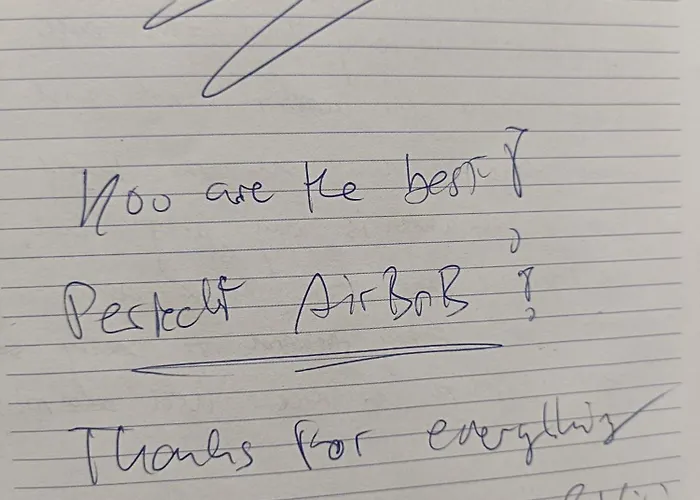 You are the best!
Perfect AirBnB!
Thanks for everything